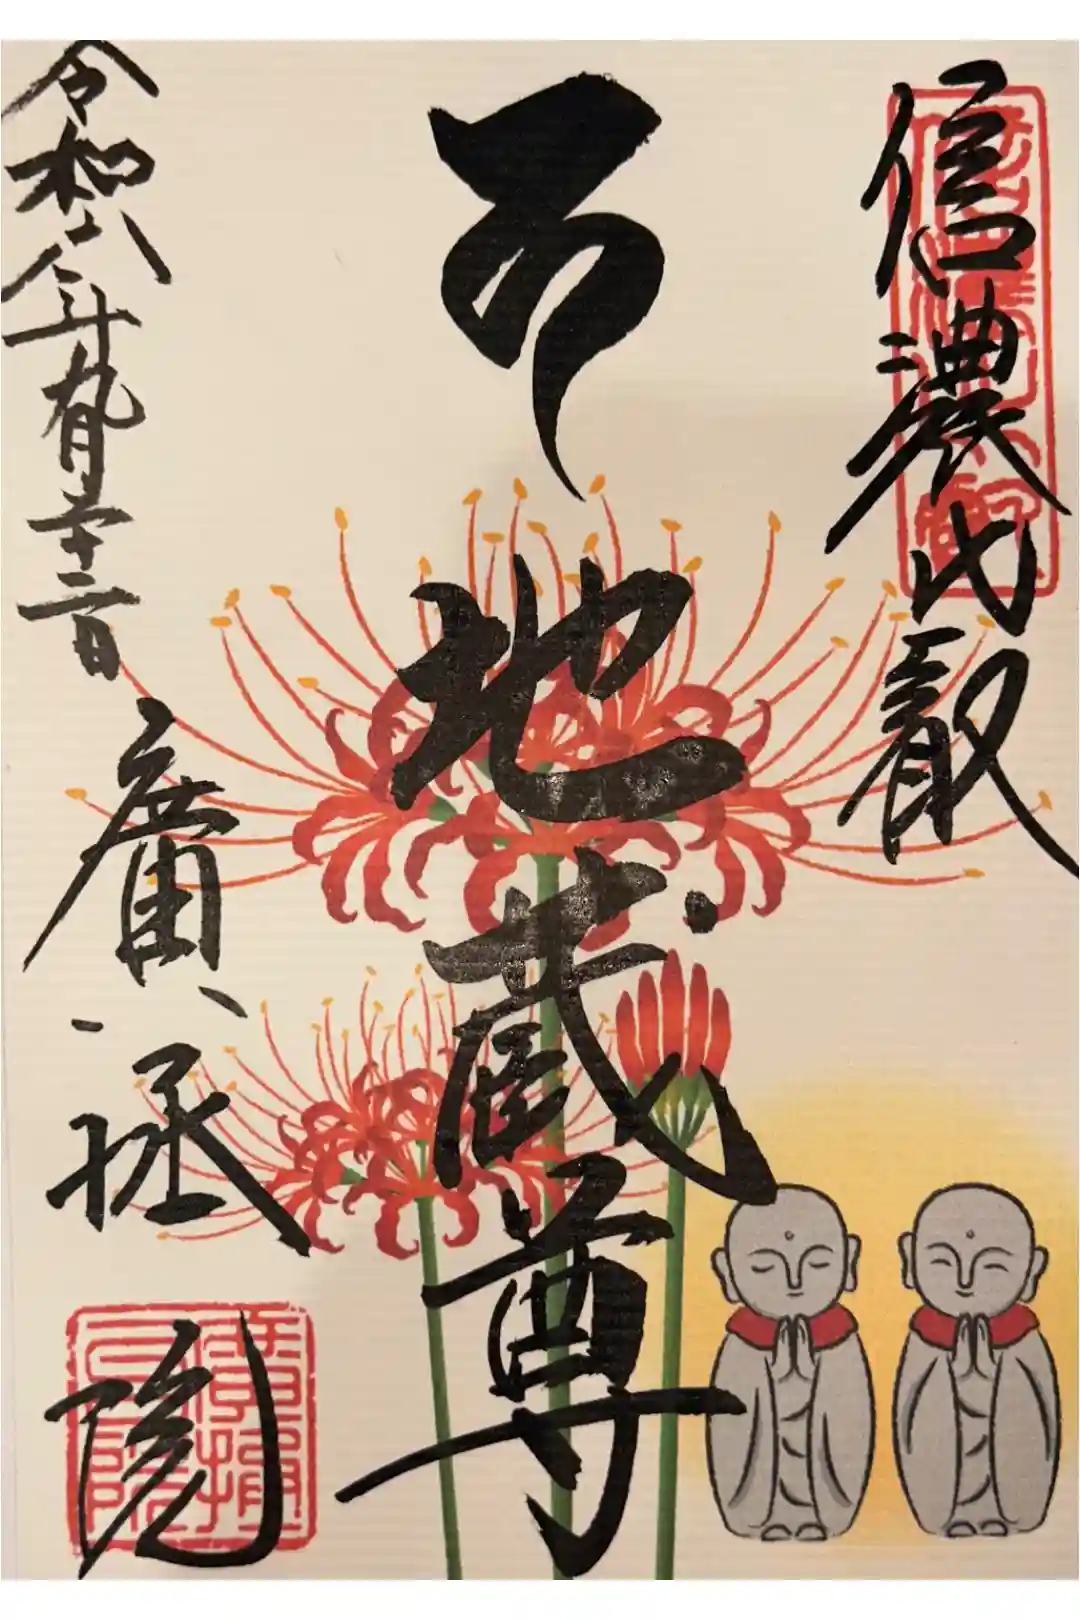 信濃比叡
地蔵尊
令和六年九月二十二日
廣拯院